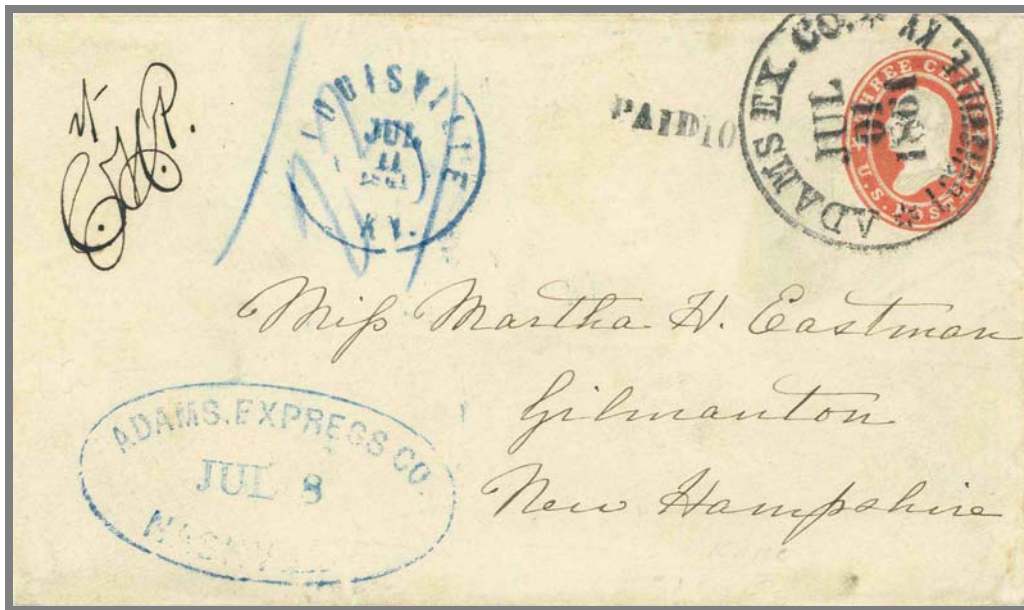 LOUISVILLE
JUL
11
1861
KY.
PAID 10
ADAMS EX. CO. * LOUISVILLE, KY *
JUL
1861
THREE CENTS
U.S. POSTAGE
Miſs Martha H. Eastman
Gilmanton
New Hampshire
ADAMS. EXPRESS CO.
JUL 8